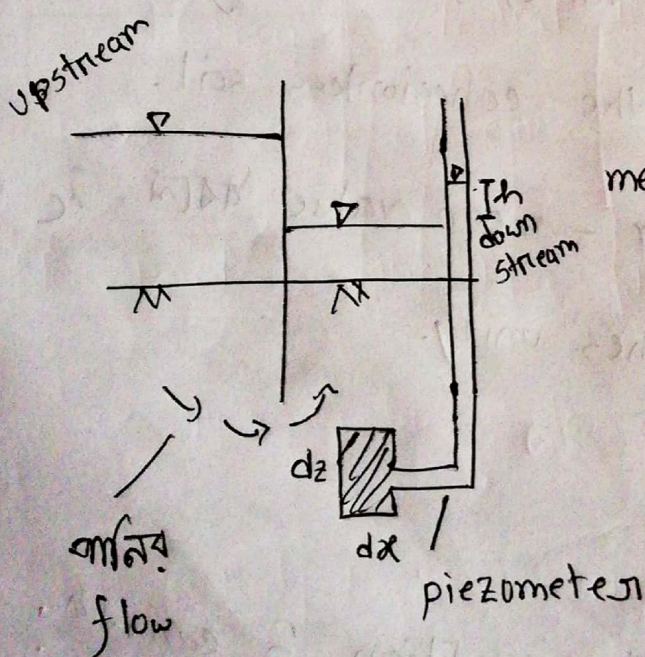 upstream
h
down
stream
me
dz
dx
পানির
flow
piezometer